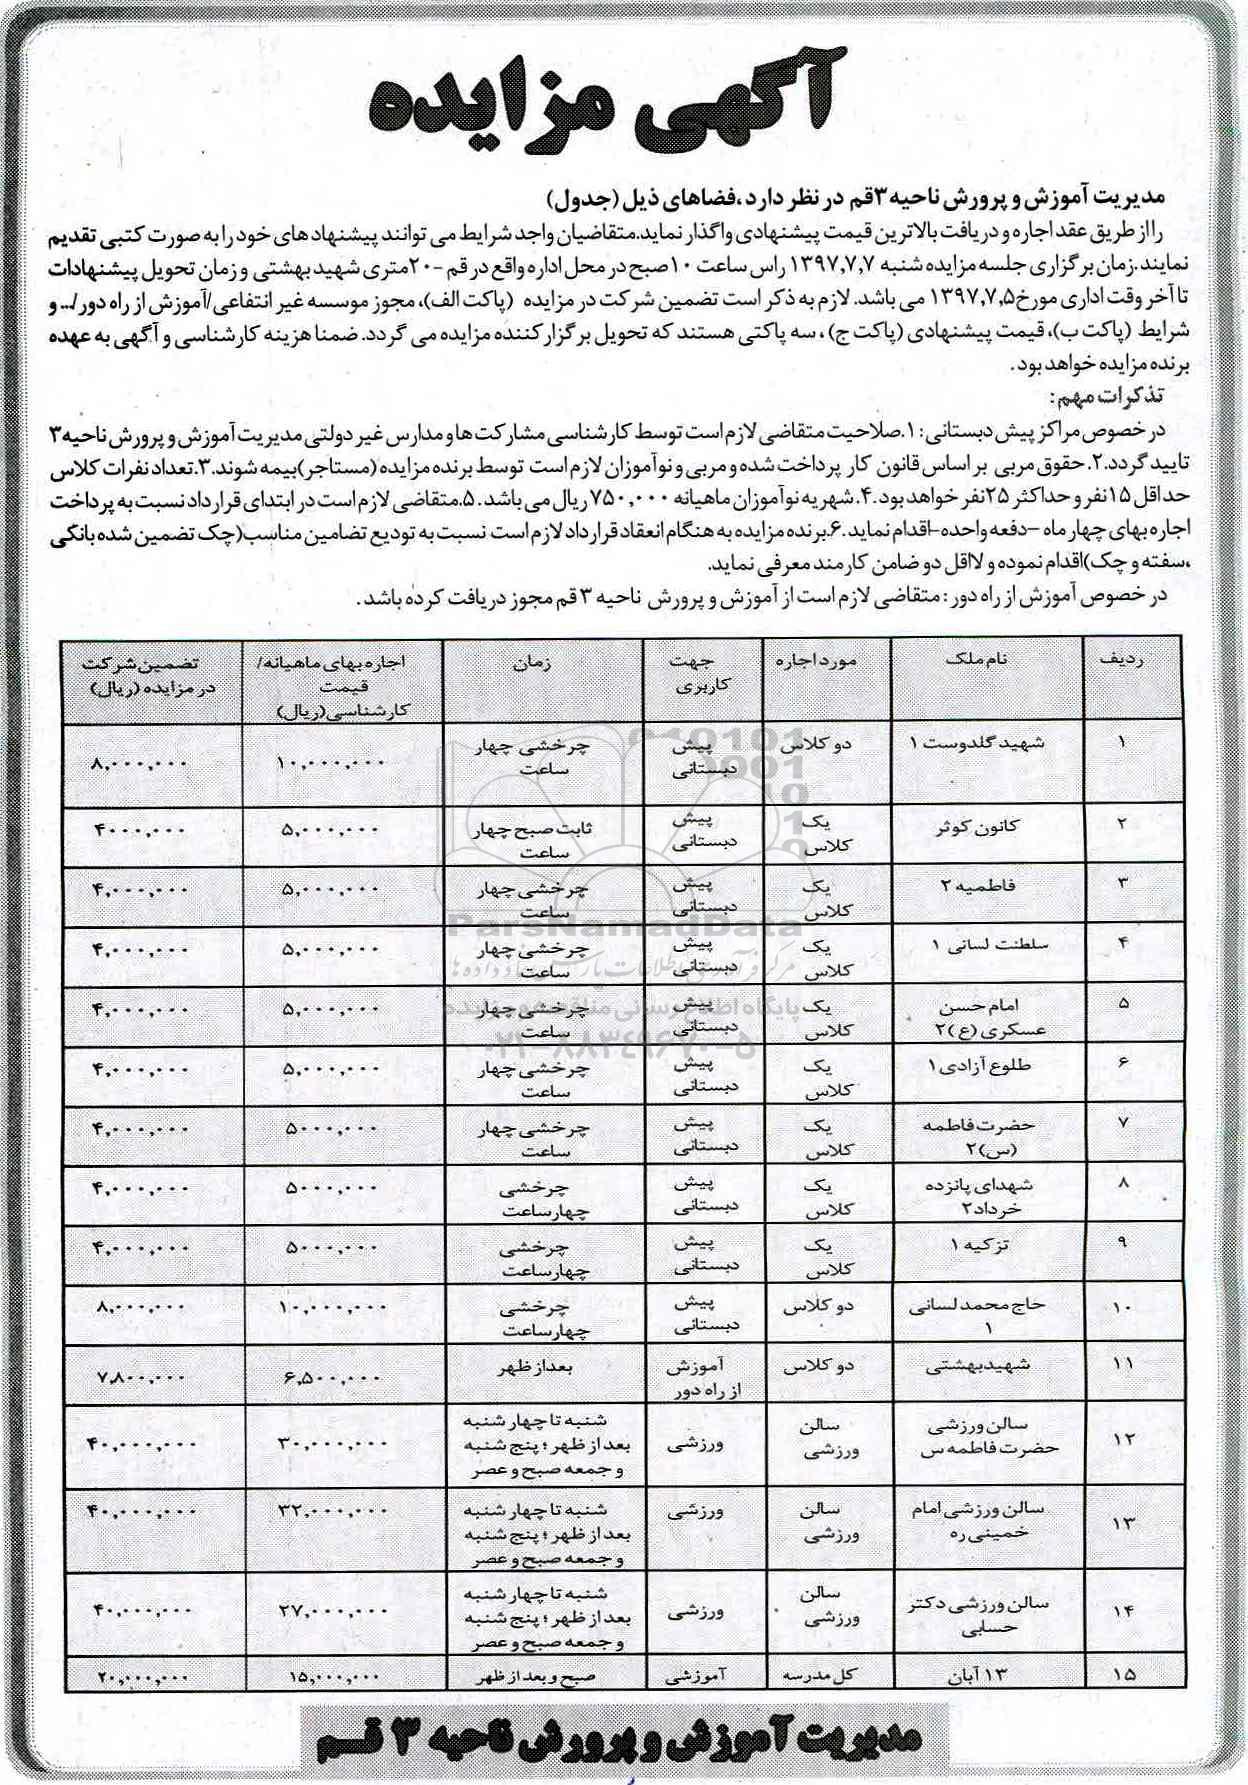 آگهی مزایده
مدیریت آموزش و پرورش ناحیه ۳ قم در نظر دارد، فضاهای ذیل (جدول)
را از طریق عقد اجاره و دریافت بالاترین قیمت پیشنهادی واگذار نماید. متقاضیان واجد شرایط می توانند پیشنهاد های خود را به صورت کتبی تقدیم
نمایند. زمان برگزاری جلسه مزایده شنبه ۱۳۹۷,۷,۷ راس ساعت ۱۰ صبح در محل اداره واقع در قم -۲۰متری شهید بهشتی و زمان تحویل پیشنهادات
تا آخر وقت اداری مورخ ۱۳۹۷,۷,۵ می باشد. لازم به ذکر است تضمین شرکت در مزایده (پاکت الف)، مجوز موسسه غیر انتفاعی/آموزش از راه دور/... و
شرایط (پاکت ب)، قیمت پیشنهادی (پاکت ج)، سه پاکتی هستند که تحویل برگزار کننده مزایده می گردد. ضمنا هزینه کارشناسی و آگهی به عهده
برنده مزایده خواهد بود.
تذکرات مهم:
در خصوص مراکز پیش دبستانی: ۱.صلاحیت متقاضی لازم است توسط کارشناسی مشارکت ها و مدارس غیر دولتی مدیریت آموزش و پرورش ناحیه ۳
تایید گردد. ۲. حقوق مربی بر اساس قانون کار پرداخت شده و مربی و نوآموزان لازم است توسط برنده مزایده (مستاجر) بیمه شوند. ۳.تعداد نفرات کلاس
حداقل ۱۵نفر و حداکثر ۲۵نفر خواهد بود. ۴. شهریه نوآموزان ماهیانه ۷۵۰,۰۰۰ ریال می باشد. ۵.متقاضی لازم است در ابتدای قرارداد نسبت به پرداخت
اجاره بهای چهار ماه -دفعه واحده-اقدام نماید. ۶.برنده مزایده به هنگام انعقاد قرارداد لازم است نسبت به تودیع تضامین مناسب (چک تضمین شده بانکی
،سفته و چک) اقدام نموده و لااقل دو ضامن کارمند معرفی نماید.
در خصوص آموزش از راه دور: متقاضی لازم است از آموزش و پرورش ناحیه ۳ قم مجوز دریافت کرده باشد.
ردیف نام ملک مورد اجاره جهت کاربری زمان اجاره بهای ماهیانه/ قیمت کارشناسی(ریال) تضمین شرکت در مزایده (ریال)
۱ شهید گلدوست ۱ دو کلاس پیش دبستانی چرخشی چهار ساعت ۱۰,۰۰۰,۰۰۰ ۸,۰۰۰,۰۰۰
۲ کانون کوثر یک کلاس پیش دبستانی ثابت صبح چهار ساعت ۵,۰۰۰,۰۰۰ ۴۰۰۰,۰۰۰
۳ فاطمیه ۲ یک کلاس پیش دبستانی چرخشی چهار ساعت ۵,۰۰۰,۰۰۰ ۴,۰۰۰,۰۰۰
۴ سلطنت لسانی ۱ یک کلاس پیش دبستانی چرخشی چهار ساعت ۵,۰۰۰,۰۰۰ ۴,۰۰۰,۰۰۰
۵ امام حسن عسکری (ع) ۲ یک کلاس پیش دبستانی چرخشی چهار ساعت ۵,۰۰۰,۰۰۰ ۴,۰۰۰,۰۰۰
۶ طلوع آزادی ۱ یک کلاس پیش دبستانی چرخشی چهار ساعت ۵,۰۰۰,۰۰۰ ۴,۰۰۰,۰۰۰
۷ حضرت فاطمه (س) ۲ یک کلاس پیش دبستانی چرخشی چهار ساعت ۵۰۰۰,۰۰۰ ۴,۰۰۰,۰۰۰
۸ شهدای پانزده خرداد ۲ یک کلاس پیش دبستانی چرخشی چهار ساعت ۵۰۰۰,۰۰۰ ۴,۰۰۰,۰۰۰
۹ تزکیه ۱ یک کلاس پیش دبستانی چرخشی چهار ساعت ۵۰۰۰,۰۰۰ ۴,۰۰۰,۰۰۰
۱۰ حاج محمد لسانی ۱ دو کلاس پیش دبستانی چرخشی چهار ساعت ۱۰,۰۰۰,۰۰۰ ۸,۰۰۰,۰۰۰
۱۱ شهید بهشتی دو کلاس آموزش از راه دور بعد از ظهر ۶,۵۰۰,۰۰۰ ۷,۸۰۰,۰۰۰
۱۲ سالن ورزشی حضرت فاطمه س سالن ورزشی ورزشی شنبه تا چهار شنبه بعد از ظهر ؛ پنج شنبه و جمعه صبح و عصر ۳۰,۰۰۰,۰۰۰ ۴۰,۰۰۰,۰۰۰
۱۳ سالن ورزشی امام خمینی ره سالن ورزشی ورزشی شنبه تا چهار شنبه بعد از ظهر ؛ پنج شنبه و جمعه صبح و عصر ۳۲,۰۰۰,۰۰۰ ۴۰,۰۰۰,۰۰۰
۱۴ سالن ورزشی دکتر حسابی سالن ورزشی ورزشی شنبه تا چهار شنبه بعد از ظهر ؛ پنج شنبه و جمعه صبح و عصر ۲۷,۰۰۰,۰۰۰ ۴۰,۰۰۰,۰۰۰
۱۵ ۱۳ آبان کل مدرسه آموزشی صبح و بعد از ظهر ۱۵,۰۰۰,۰۰۰ ۲۰,۰۰۰,۰۰۰
ParsNamadData
۰۲۱-۸۸۳۴۹۶۷۰-۵
مدیریت آموزش و پرورش ناحیه ۳ قم